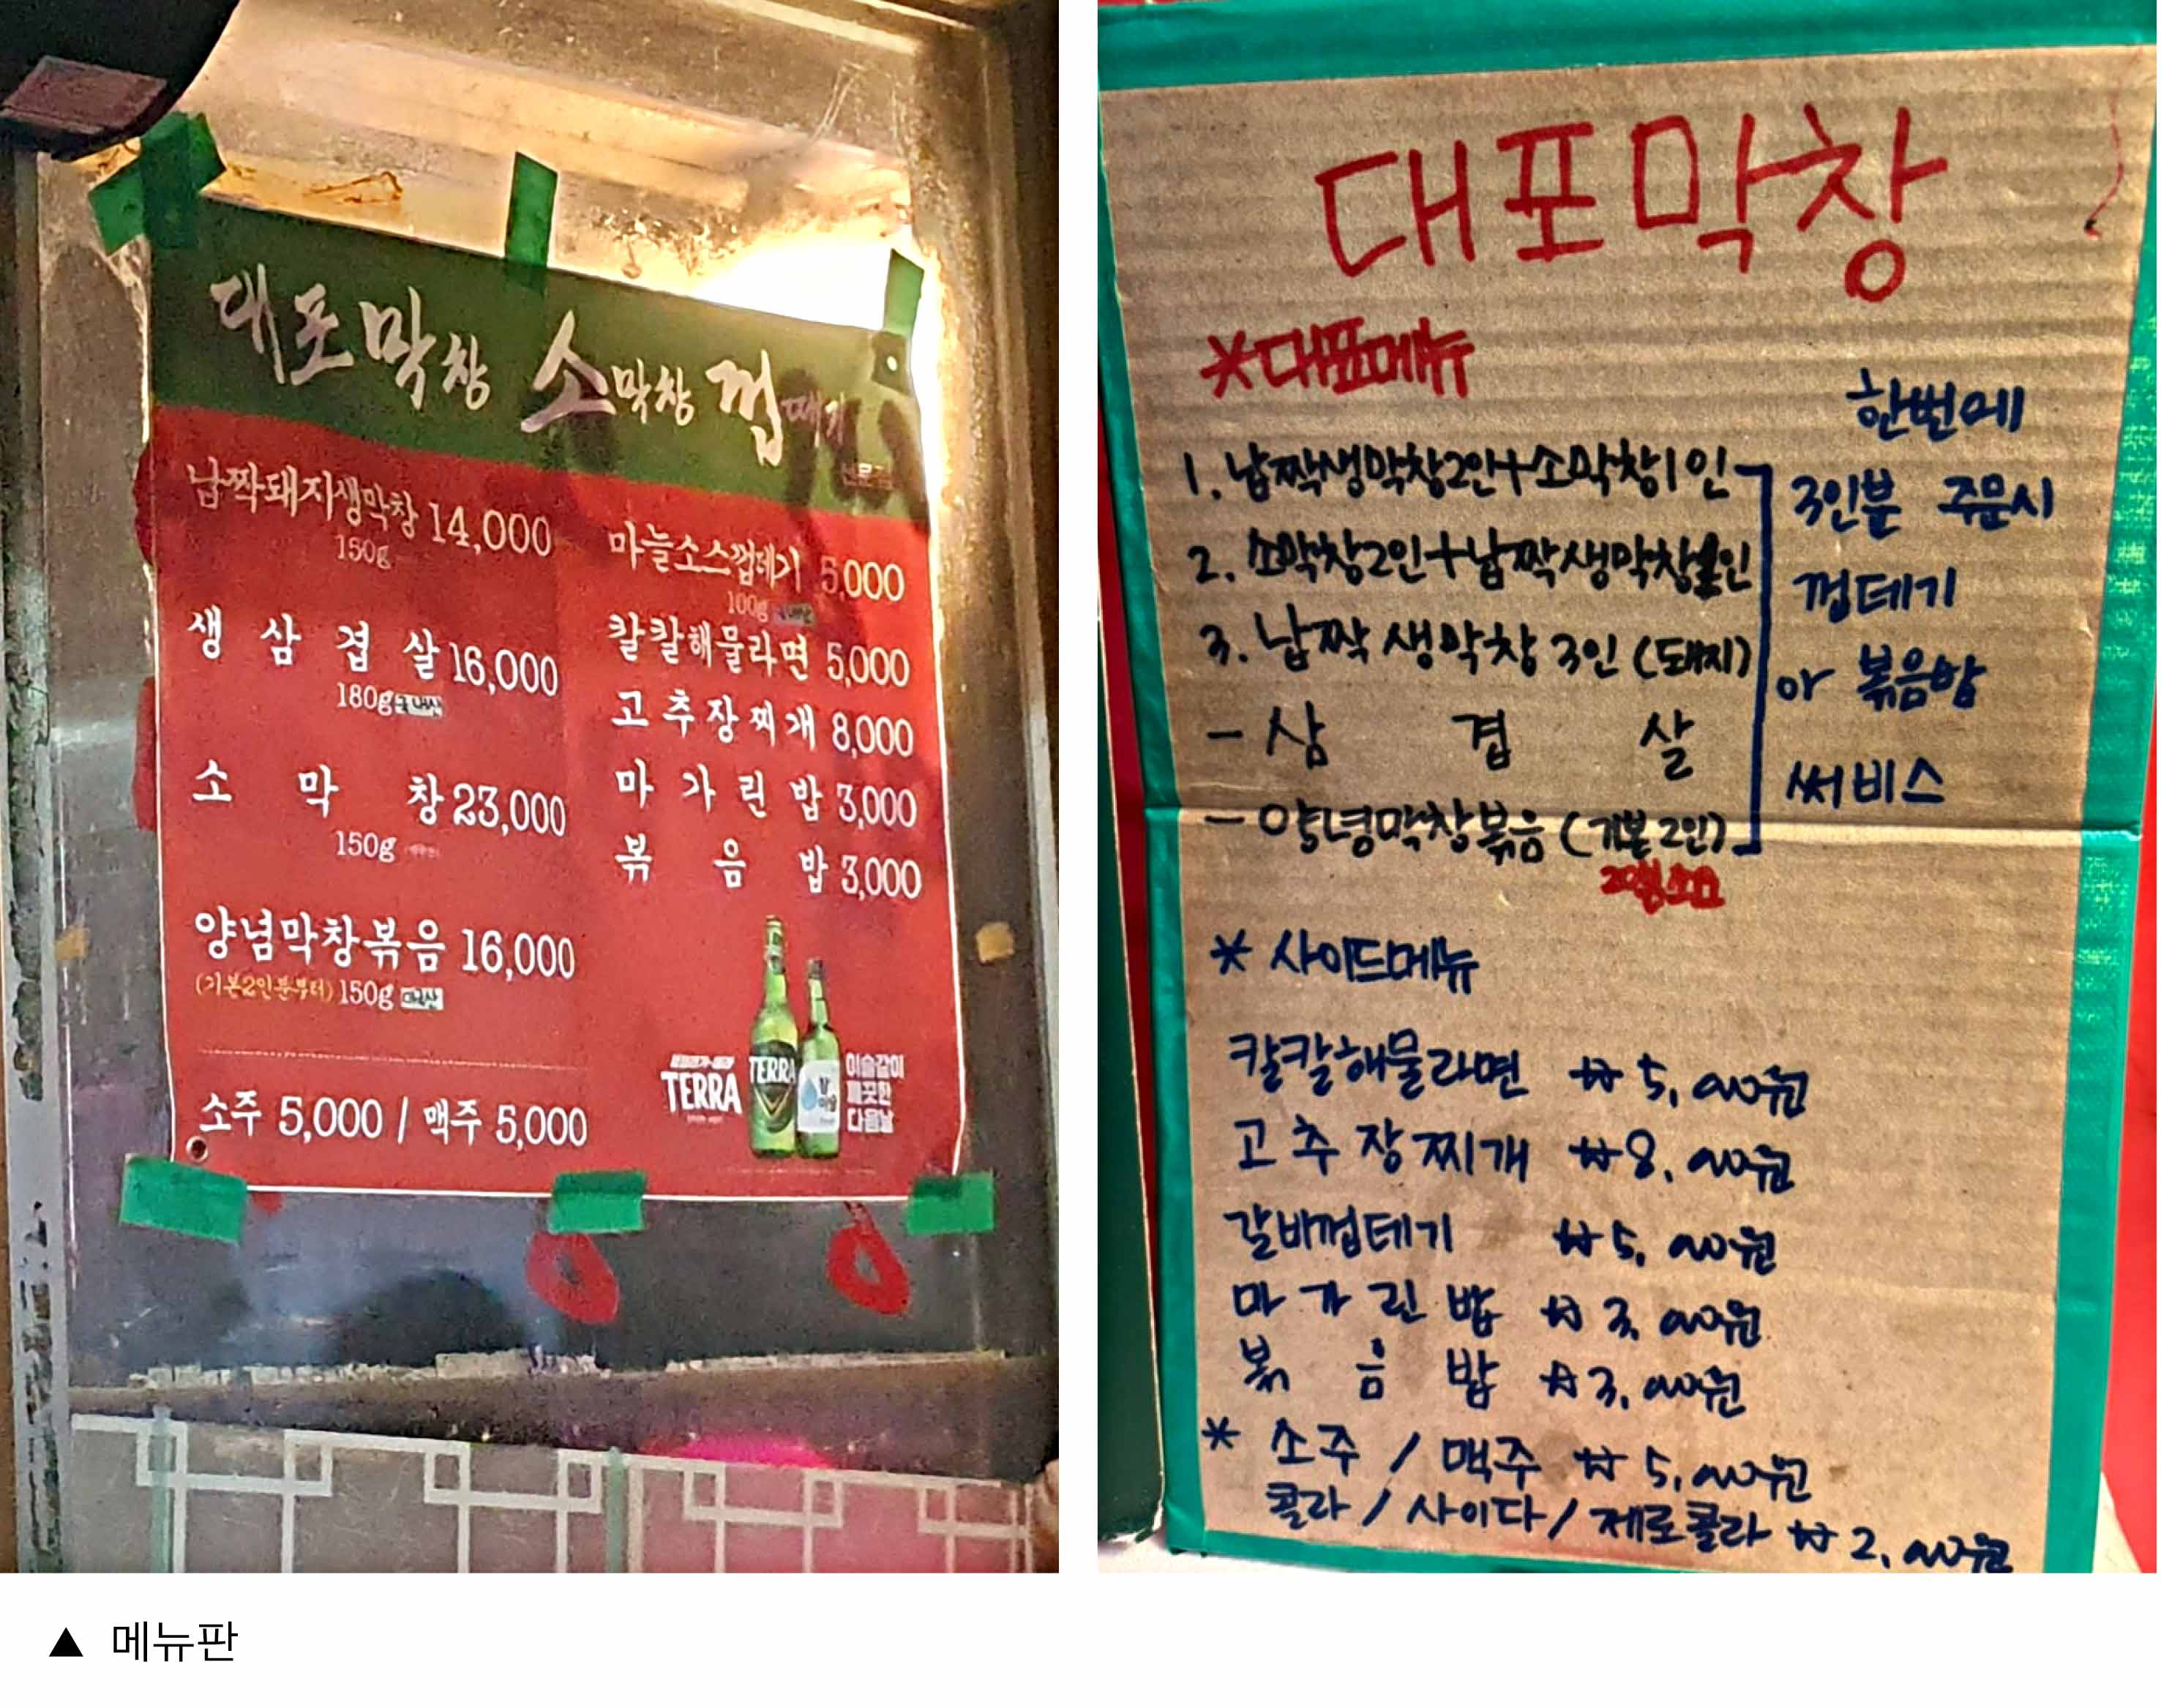 대포막창 소막창 껍데기
납짝돼지생막창 14,000
150g
생 삼 겹 살 16,000
180g 국내산
소 막 창 23,000
150g
양념막창볶음 16,000
(기본2인분부터) 150g 국내산
소주 5,000 / 맥주 5,000
마늘소스껍데기 5,000
100g 국내산
칼칼해물라면 5,000
고추장찌개 8,000
마가린밥 3,000
볶음밥 3,000
TERRA
TERRA
이슬같이
깨끗한
다음날
대포막창
*대표메뉴
1. 납짝생막창2인+소막창1인
2. 소막창2인+납짝생막창1인
3. 납짝생막창 3인 (돼지)
- 삼 겹 살
- 양념막창볶음 (기본 2인)
20분소요
한번에
3인분 주문시
껍데기
or 볶음밥
써비스
* 사이드메뉴
칼칼해물라면 ₩5,000원
고추장찌개 ₩8,000원
갈비껍데기 ₩5,000원
마가린밥 ₩3,000원
볶음밥 ₩3,000원
* 소주 / 맥주 ₩5,000원
콜라 / 사이다 / 제로콜라 ₩2,000원
▲ 메뉴판